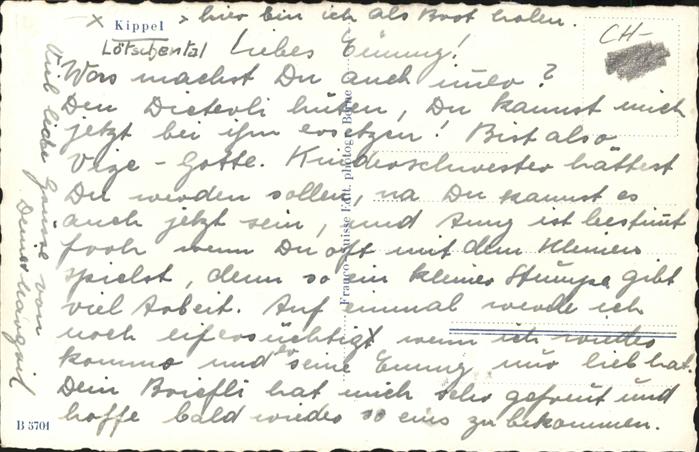 x > hier bin ich als Brot holen.
Kippel
Lötschental
CH-
Liebes Emmy!
Was machst Du auch immer?
Den Dieterli hüten, Du kannst mich
jetzt bei ihm ersetzen! Bist also
Vize-Gotte. Kinderschwester hättest
Du werden sollen, na Du kannst es
auch jetzt sein, und Anny ist bestimt
froh wenn Du oft mit dem Kleinen
spielst, denn so ein kleiner Stumpe gibt
viel Arbeit. Auf einmal werde ich
noch eifersüchtig x wenn ich wieder
komme und er seine Emmy nur lieb hat.
Dein Briefli hat mich sehr gefreut und
hoffe bald wieder so eins zu bekommen.
Viel liebe Grüsse von
Deiner Margrit
Franco-Suisse Edit. photogr. Berne
B 5701